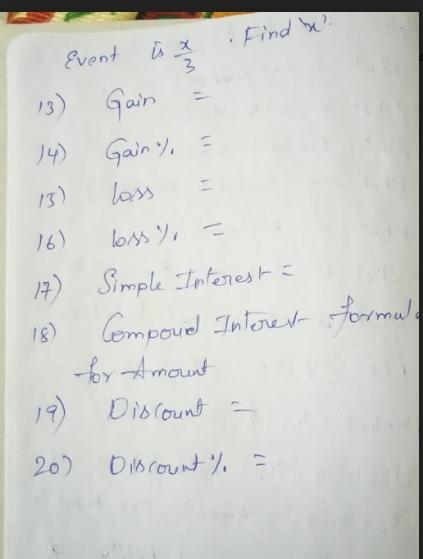 Event is x/3 . Find 'x'.
13) Gain =
14) Gain %. =
15) loss =
16) loss %. =
17) Simple Interest =
18) Compoud Interest formul
for Amount
19) Discount =
20) Discount %. =